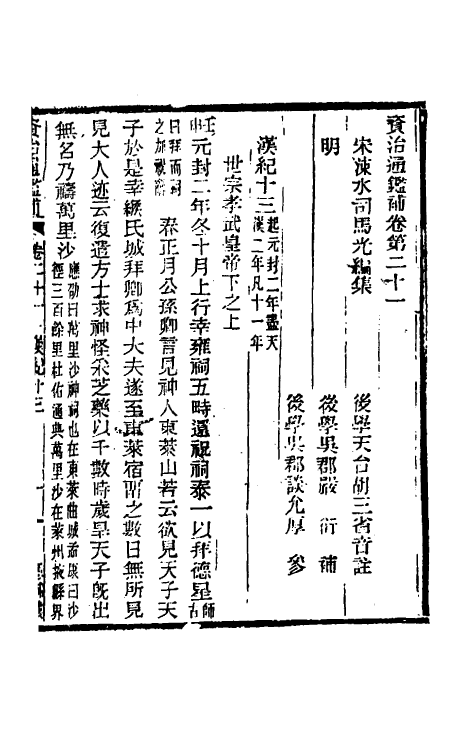 資治通鑑補卷第二十一
宋涑水司馬光編集　後學天台胡三省音註
明　後學吳郡嚴　衍　補
後學吳郡談允厚　參
漢紀十三起元封二年盡天漢二年凡十一年
世宗孝武皇帝下之上
壬申元封二年冬十月上行幸雍祠五畤還祝祠泰一以拜德星師古
曰拜而祠之加祝辭　春正月公孫卿言見神人東萊山若云欲見天子天
子於是幸緱氏城拜卿為中大夫遂至東萊宿留之數日無所見
見大人迹云復遣方士求神怪采芝藥以千數時歲旱天子旣出
無名乃禱萬里沙應劭曰萬里沙神祠也在東萊曲城孟康曰沙徑三百餘里杜佑通典萬里沙在萊州掖縣界
資治通鑑補　卷二十一　漢紀十三　一